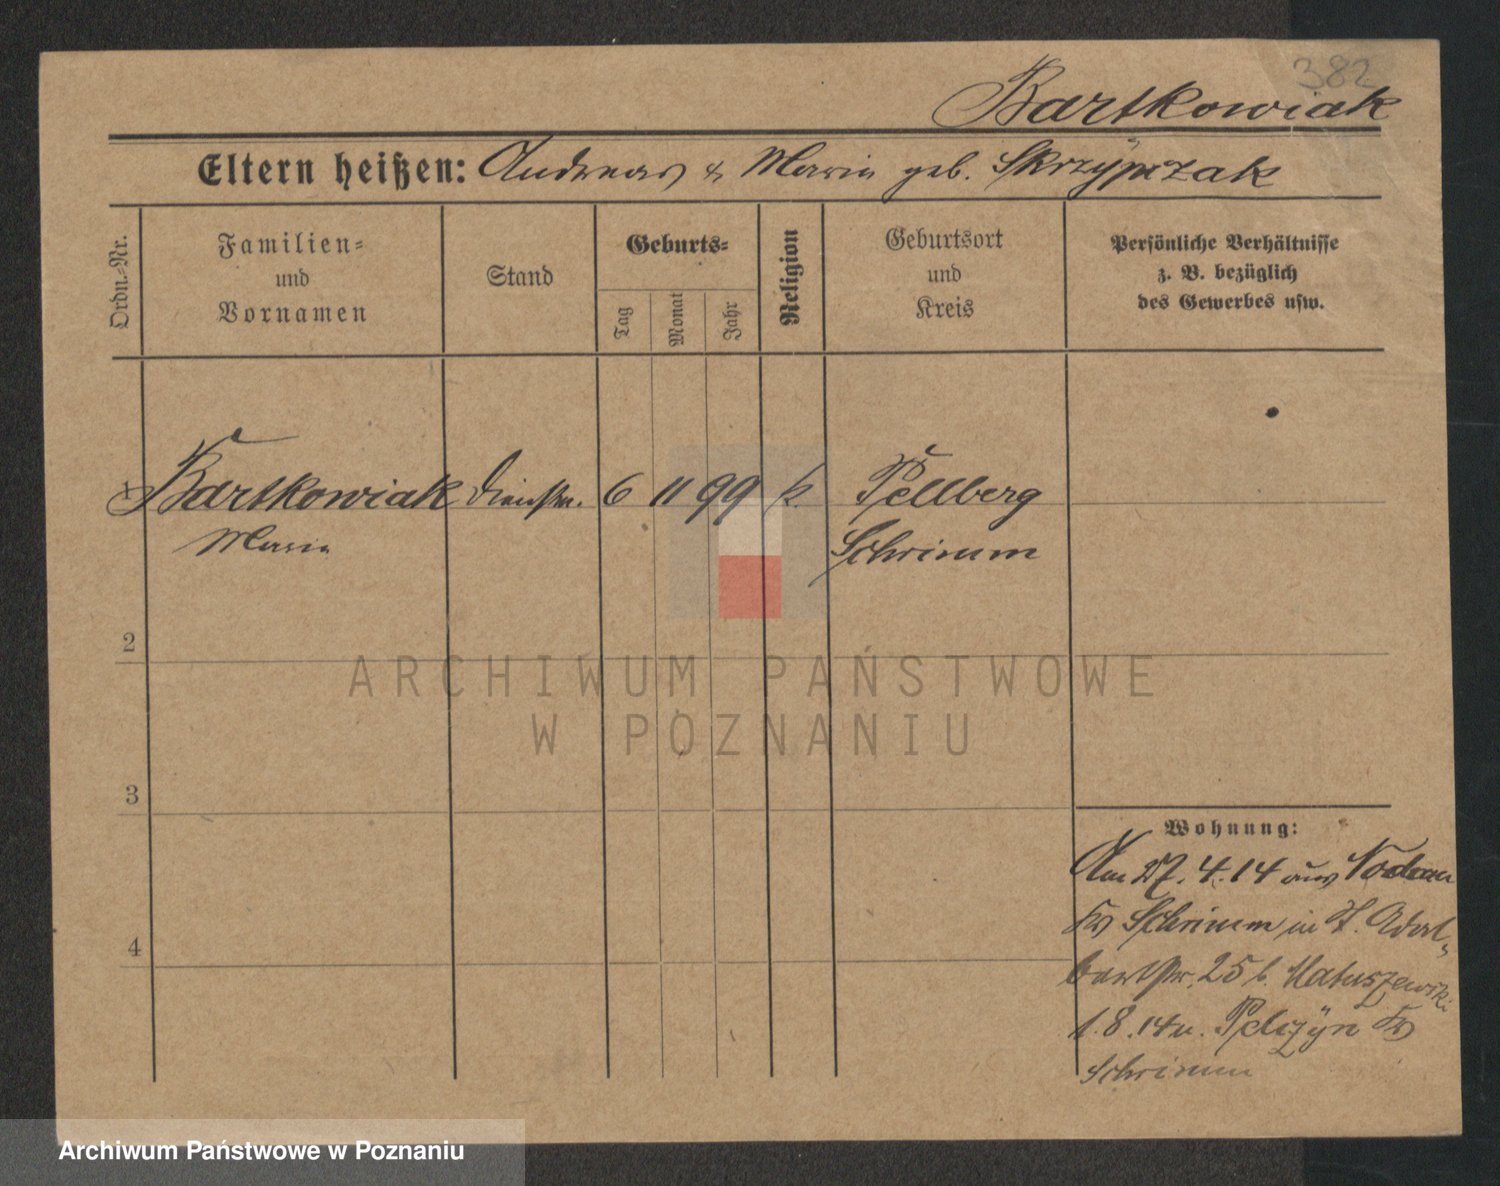 382
Bartkowiak
Eltern heißen: Andreas & Maria geb. Skrzypczak
Ordn.=Nr.
Familien=
und
Vornamen
Stand
Geburts=
Tag
Monat
Jahr
Religion
Geburtsort
und
Kreis
Persönliche Verhältnisse
z. B. bezüglich
des Gewerbes usw.
1 Bartkowiak Dienstm. 6 11 99 k. Pellberg
Maria Schrimm
2
ARCHIWUM PAŃSTWOWE
W POZNANIU
3
Wohnung:
Am 27.4.14 aus
Kr Schrimm in St. Adal-
bertstr. 25 b. Matuszewski
1.8.14 n. Pelczyn Kr
Schrimm
4
Archiwum Państwowe w Poznaniu